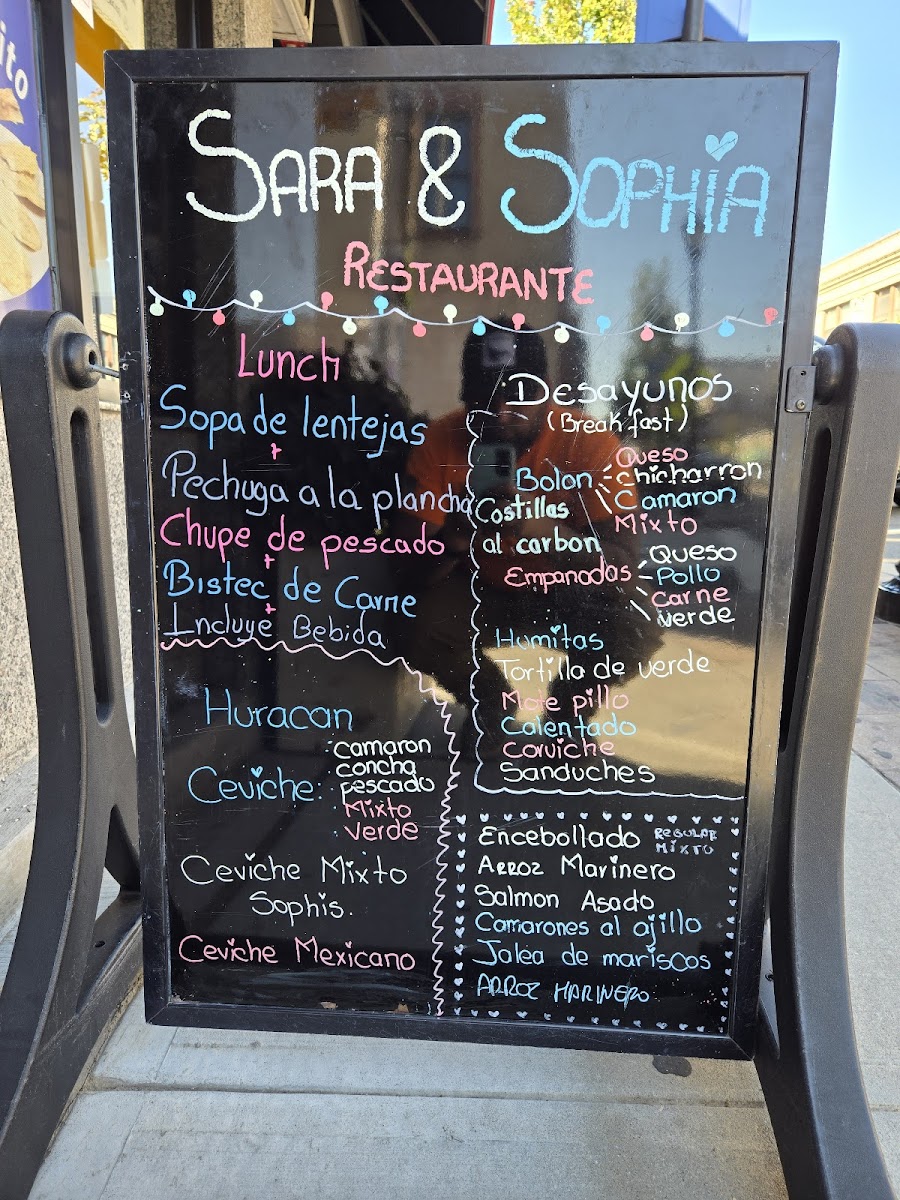 ito
SARA & SOPHIA
RESTAURANTE
Lunch
Sopa de lentejas
+
Pechuga a la plancha
Chupe de pescado
+
Bistec de Carne
+
Incluye Bebida
Huracan
Ceviche:
camaron
concha
pescado
Mixto
verde
Ceviche Mixto
Sophis.
Ceviche Mexicano
Desayunos
(Breakfast)
Bolon
Queso
Chicharron
Camaron
Mixto
Costillas
al carbon
Empanadas
Queso
Pollo
Carne
verde
Humitas
Tortilla de verde
Mote pillo
Calentado
Corviche
Sanduches
Encebollado REGULAR
MIXTO
Arroz Marinero
Salmon Asado
Camarones al ajillo
Jalea de mariscos
ARROZ MARINERO